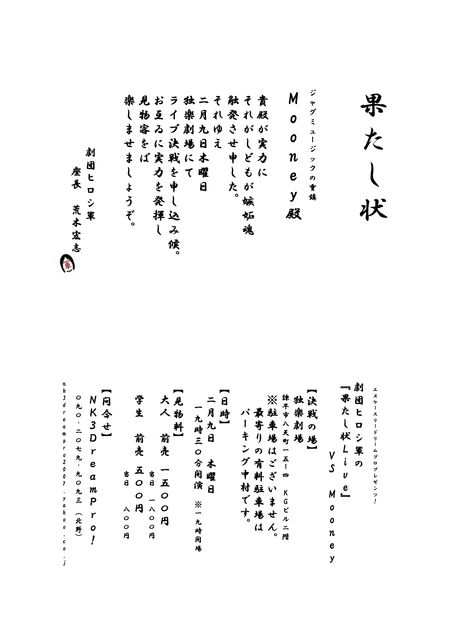 果たし状
ジャグミュージックの重鎮
Mooney殿
貴殿が実力に
それがしどもが嫉妬魂
触発させ申した。
それゆえ
二月九日木曜日
独楽劇場にて
ライブ決戦を申し込み候。
お互ゐに実力を発揮し
見物客をば
楽しませましょうぞ。
劇団ヒロシ軍
座長 荒木宏志
エヌケースリードリームプロプレゼンツ!
劇団ヒロシ軍の
『果たし状Live』
VS Mooney
【決戦の場】
独楽劇場
諫早市八天町一五-四 KGビル二階
※駐車場はございません。
最寄りの有料駐車場は
パーキング中村です。
【日時】
二月九日 木曜日
一九時三〇分開演 ※一九時開場
【見物料】
大人 前売 一五〇〇円
当日 一八〇〇円
学生 前売 五〇〇円
当日 八〇〇円
【問合せ】
NK3DreamPro!
〇九〇-二〇七九-九〇九三 (北野)
nk3dreampro2001.yahoo.co.j